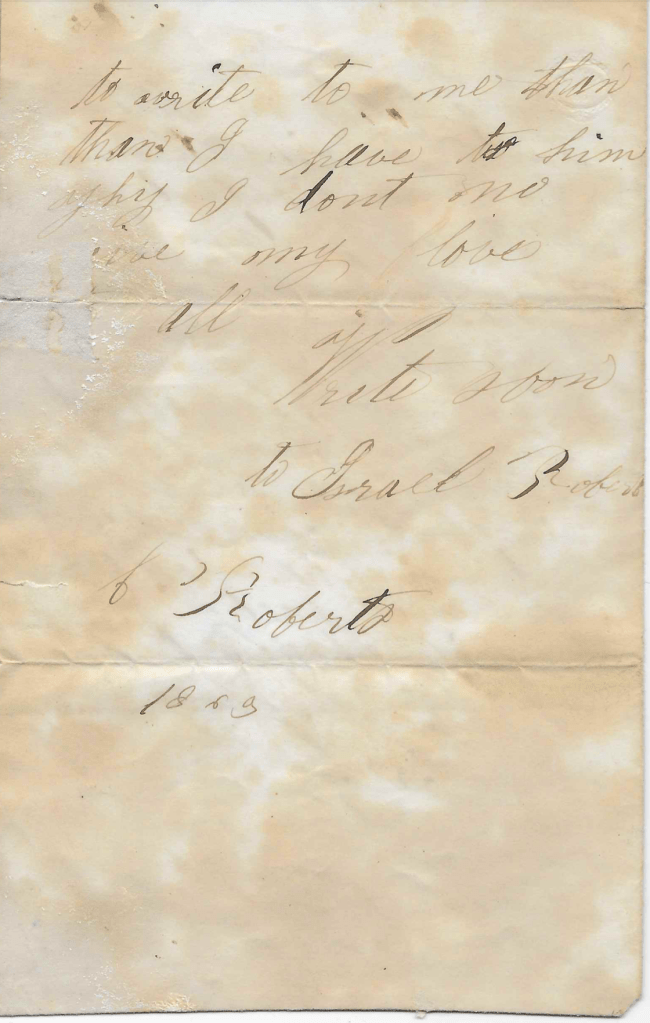 to write to me than
than I have to him
why I dont no
give my love
all
Write soon
to Israel Roberts
Roberts
1863